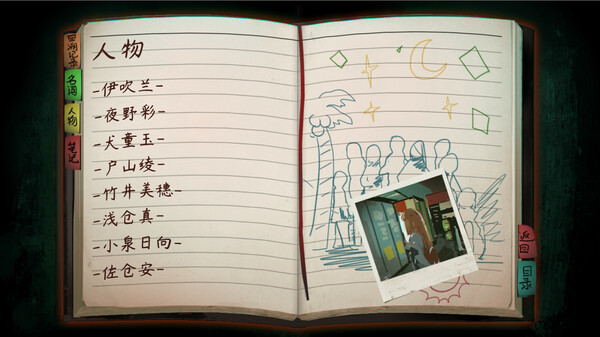 回溯记录
名词
人物
笔记
人物
-伊吹兰-
-夜野彩-
-犬童玉-
-户山绫-
-竹井美穗-
-浅仓真-
-小泉日向-
-佐仓安-
返回
目录